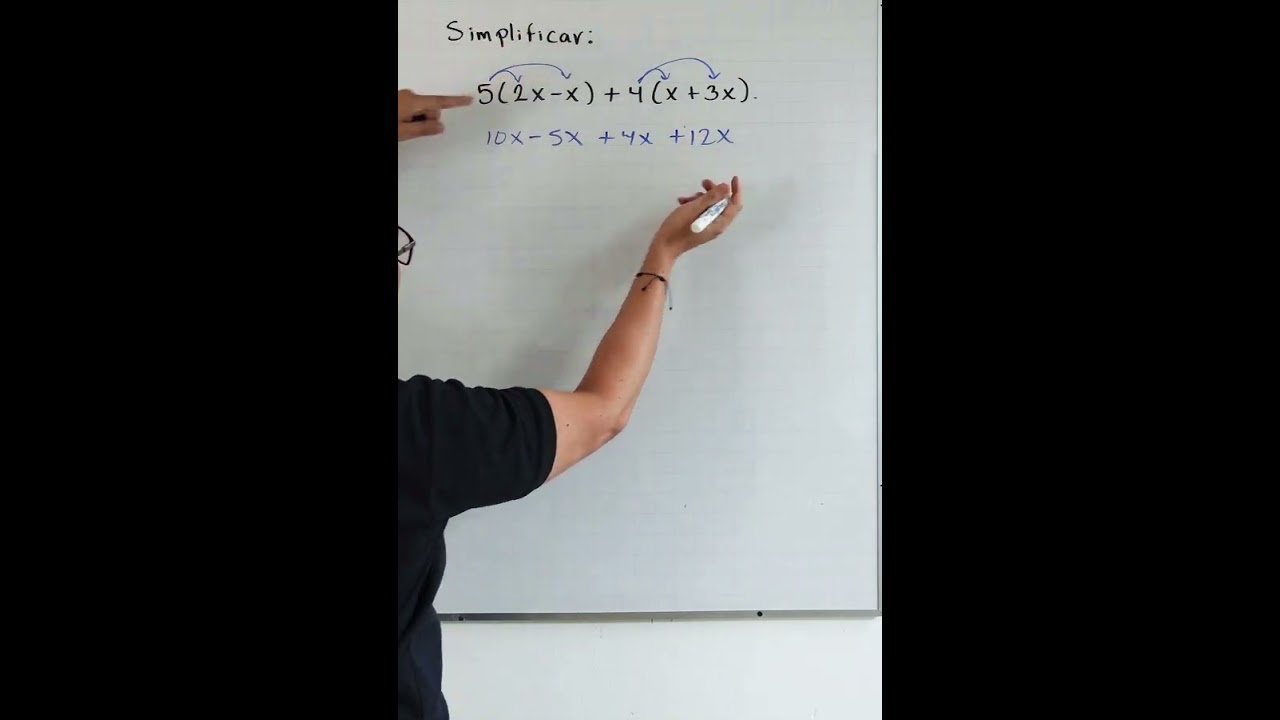 Simplificar:
5(2x-x)+4(x+3x).
10x-5x+4x+12x